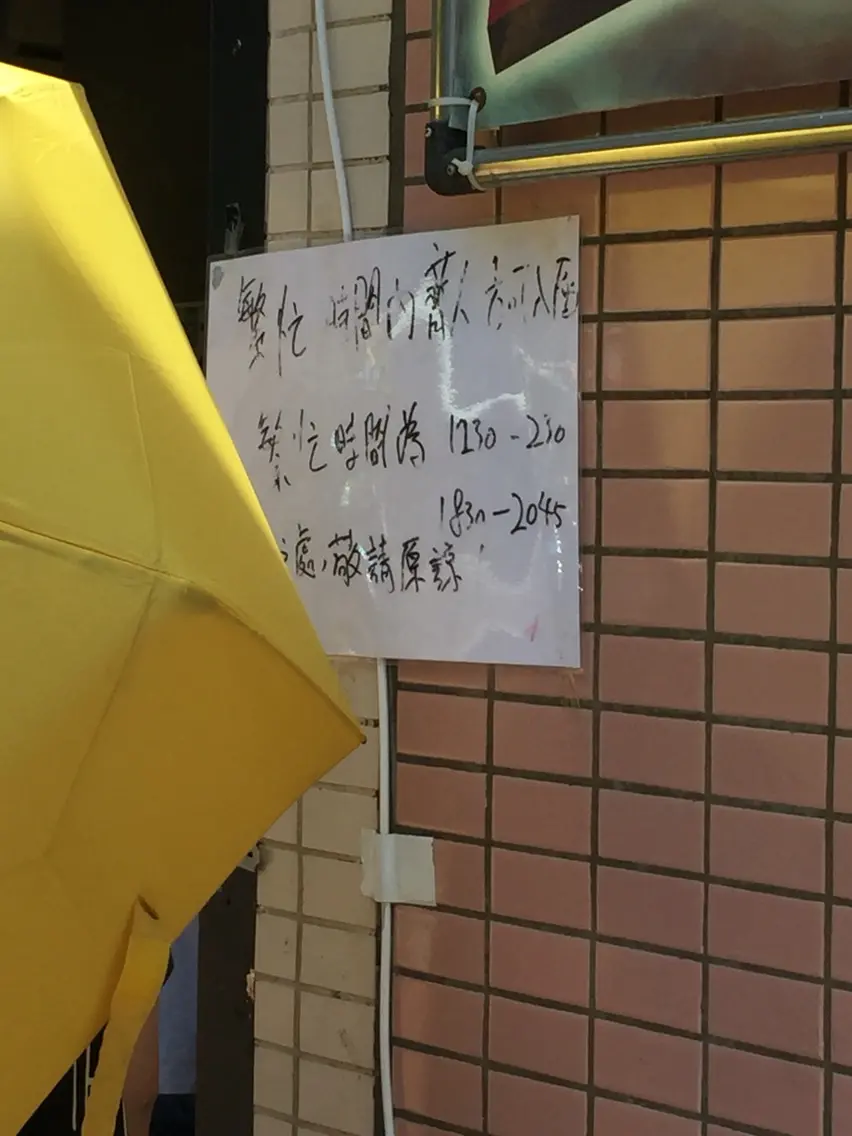 繁忙時間內齊人方可入座
繁忙時間為 1230-230
1830-2045
處,敬請原諒